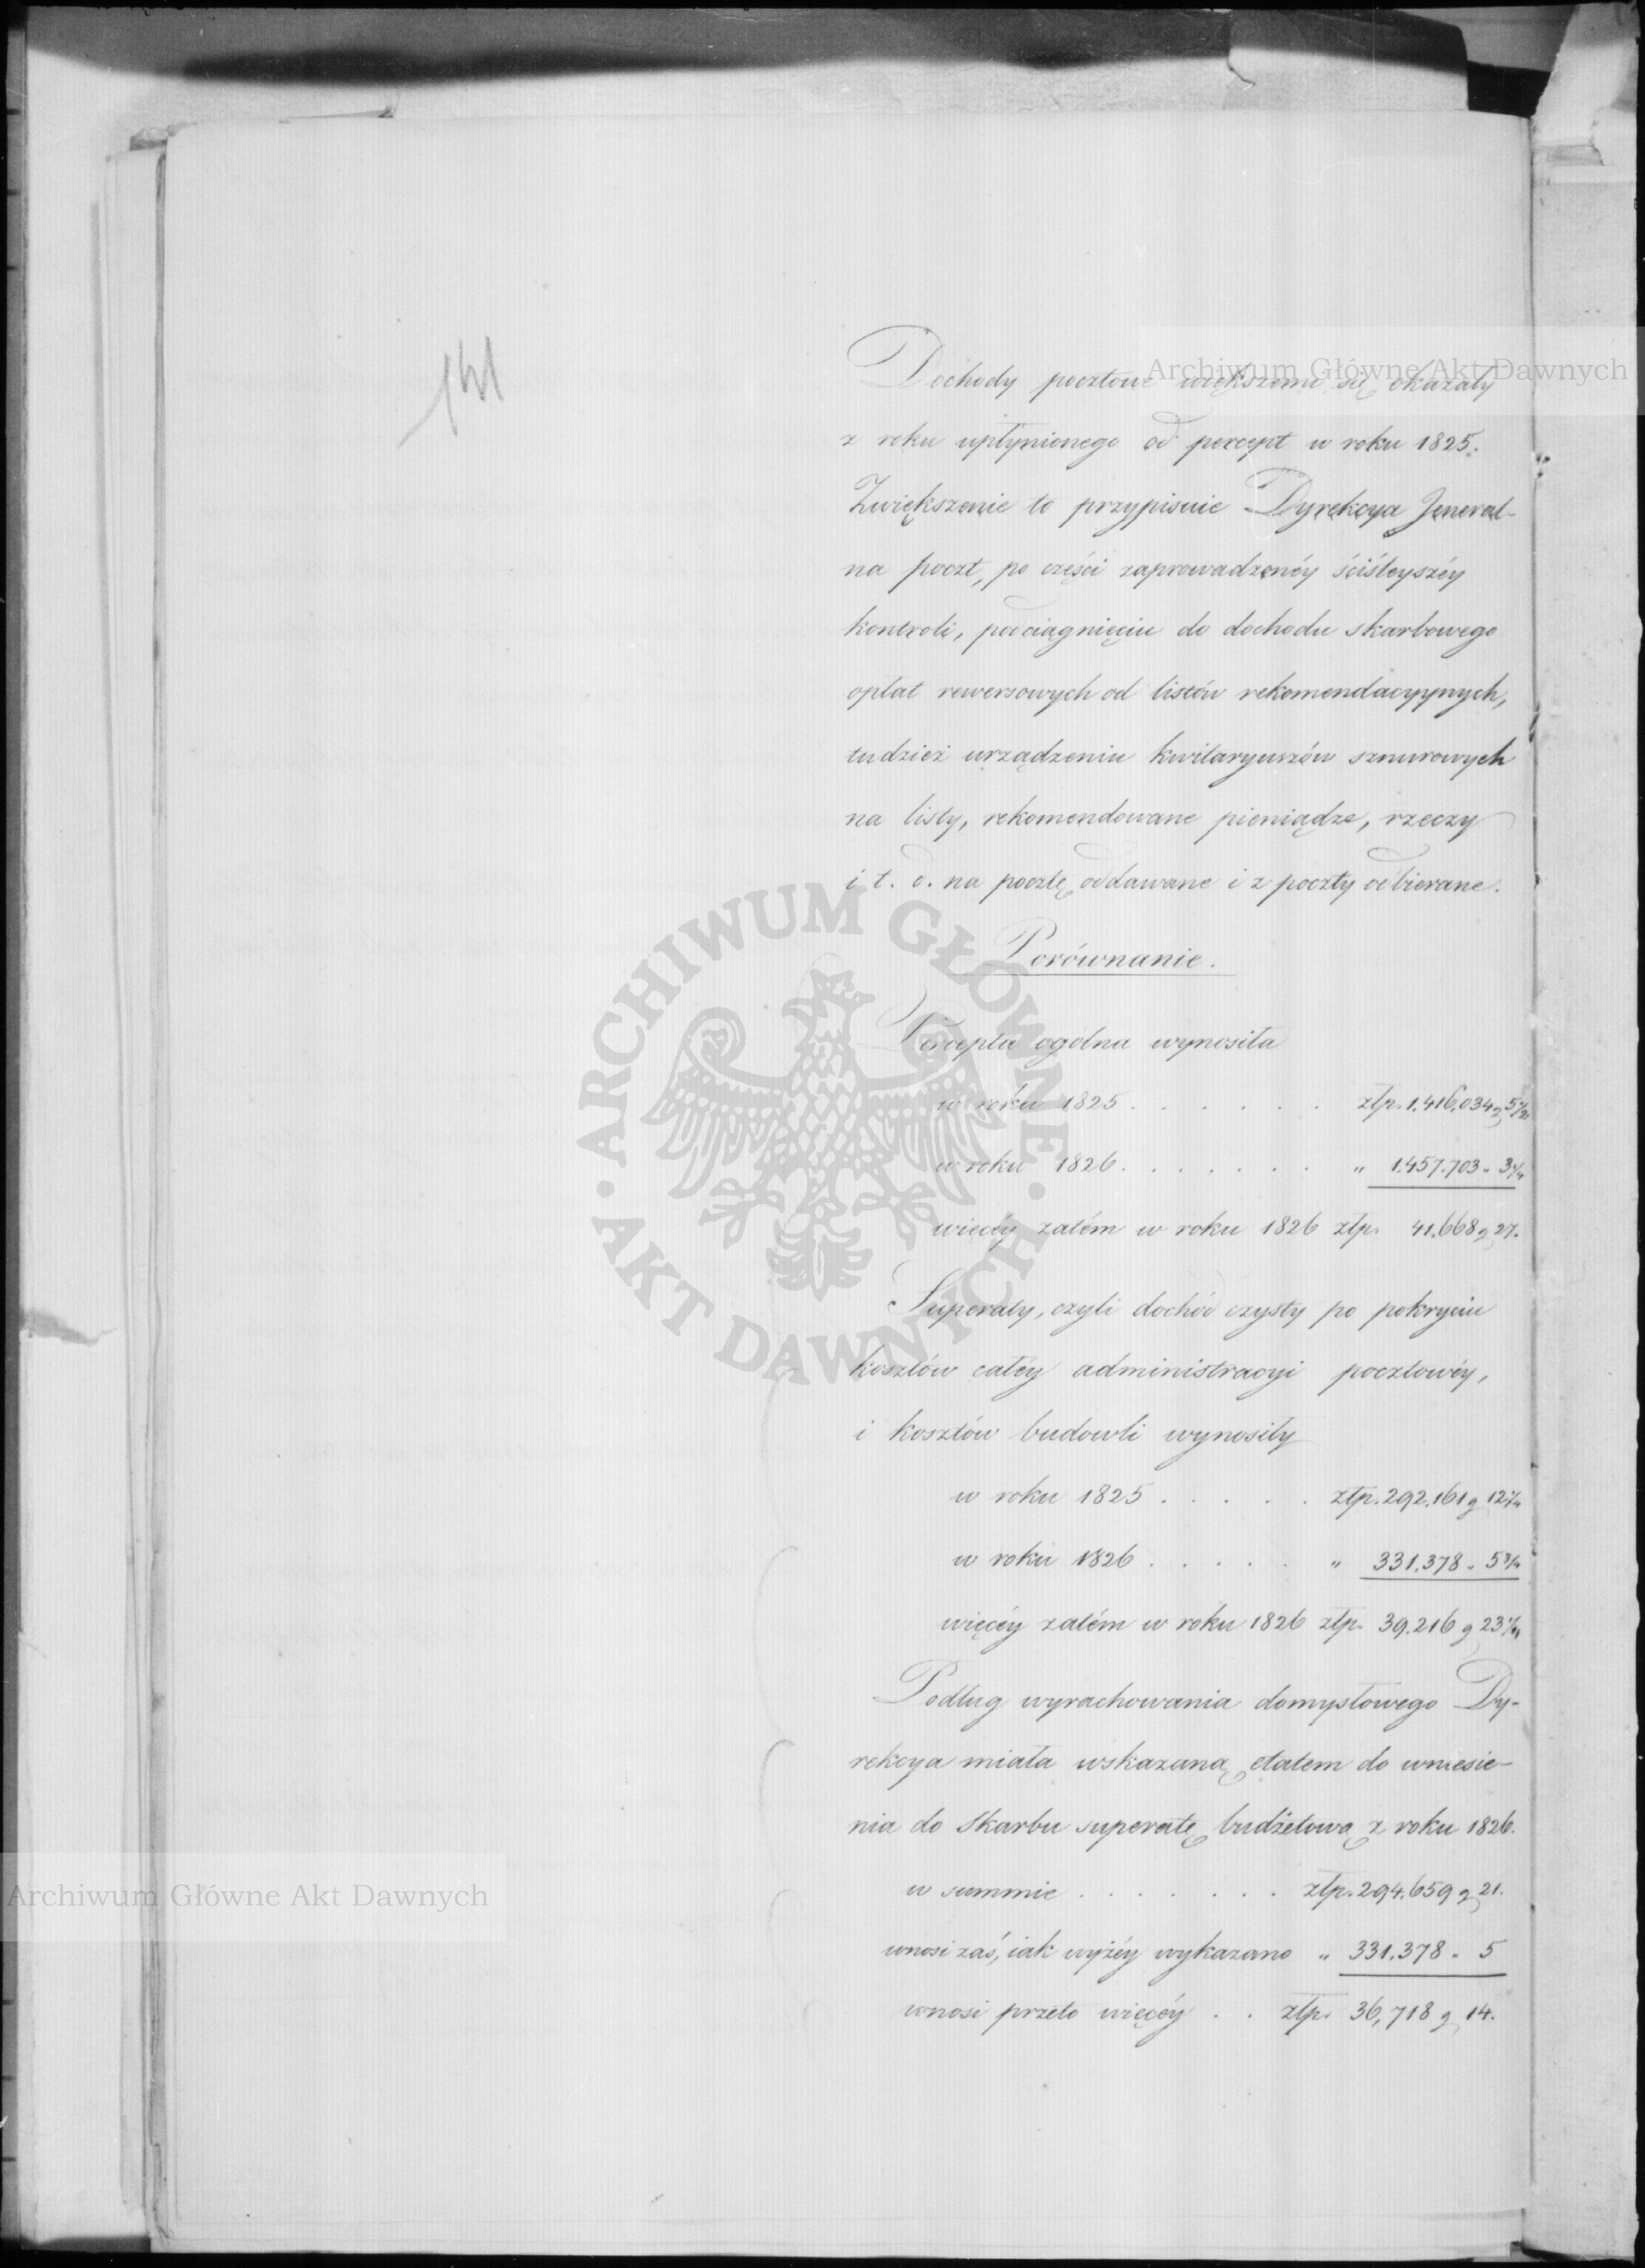 141
Dochody pocztowe większemi się okazały
z roku upłynionego od percept w roku 1825.
Zwiększenie to przypisuie Dyrekcya Jeneral-
na poczt, po części zaprowadzonéy ściśleyszéy
kontroli, podciągnięciu do dochodu skarbowego
opłat rewersowych od listów rekomendacyynych,
tudzież urządzeniu kwitaryuszów sznurowych
na listy, rekomendowane pieniądze, rzeczy
i t. d. na pocztę oddawane i z poczty odbierane.
Porównanie.
Percepta ogólna wynosiła
w roku 1825 . . . . . . złp. 1,416,034 g 5 1/2
w roku 1826 . . . . . . . " 1.457.703 " 3 1/4
więcéy zatém w roku 1826 złp. 41.668 g 27.
Superaty, czyli dochód czysty po pokryciu
kosztów całéy administracyi pocztowéy,
i kosztów budowli wynosiły
w roku 1825 . . . . . złp. 292.161 g 12
w roku 1826 . . . . . " 331.378 " 5 3/4
więcéy zatém w roku 1826 złp. 39.216 g 23
Podług wyrachowania domysłowego Dy-
rekcya miała wskazaną etatem do wniesie-
nia do Skarbu superatę budżetową z roku 1826.
w summie . . . . . . . złp. 294.659 g 21.
wnosi zaś, iak wyżéy wykazano " 331.378 " 5
wnosi przeto więcéy . . złp. 36,718 g 14.
Archiwum Główne Akt Dawnych
ARCHIWUM GŁÓWNE · AKT DAWNYCH ·
Archiwum Główne Akt Dawnych